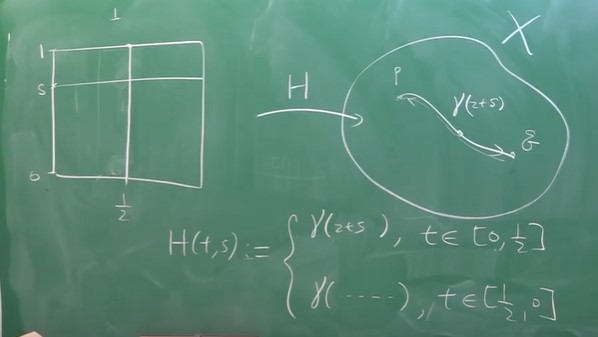 1
1
s
0
1/2
H
X
p
γ(2ts)
q
H(t,s) := { γ(2ts), t∈[0,1/2]
γ(-----), t∈[1/2,0]